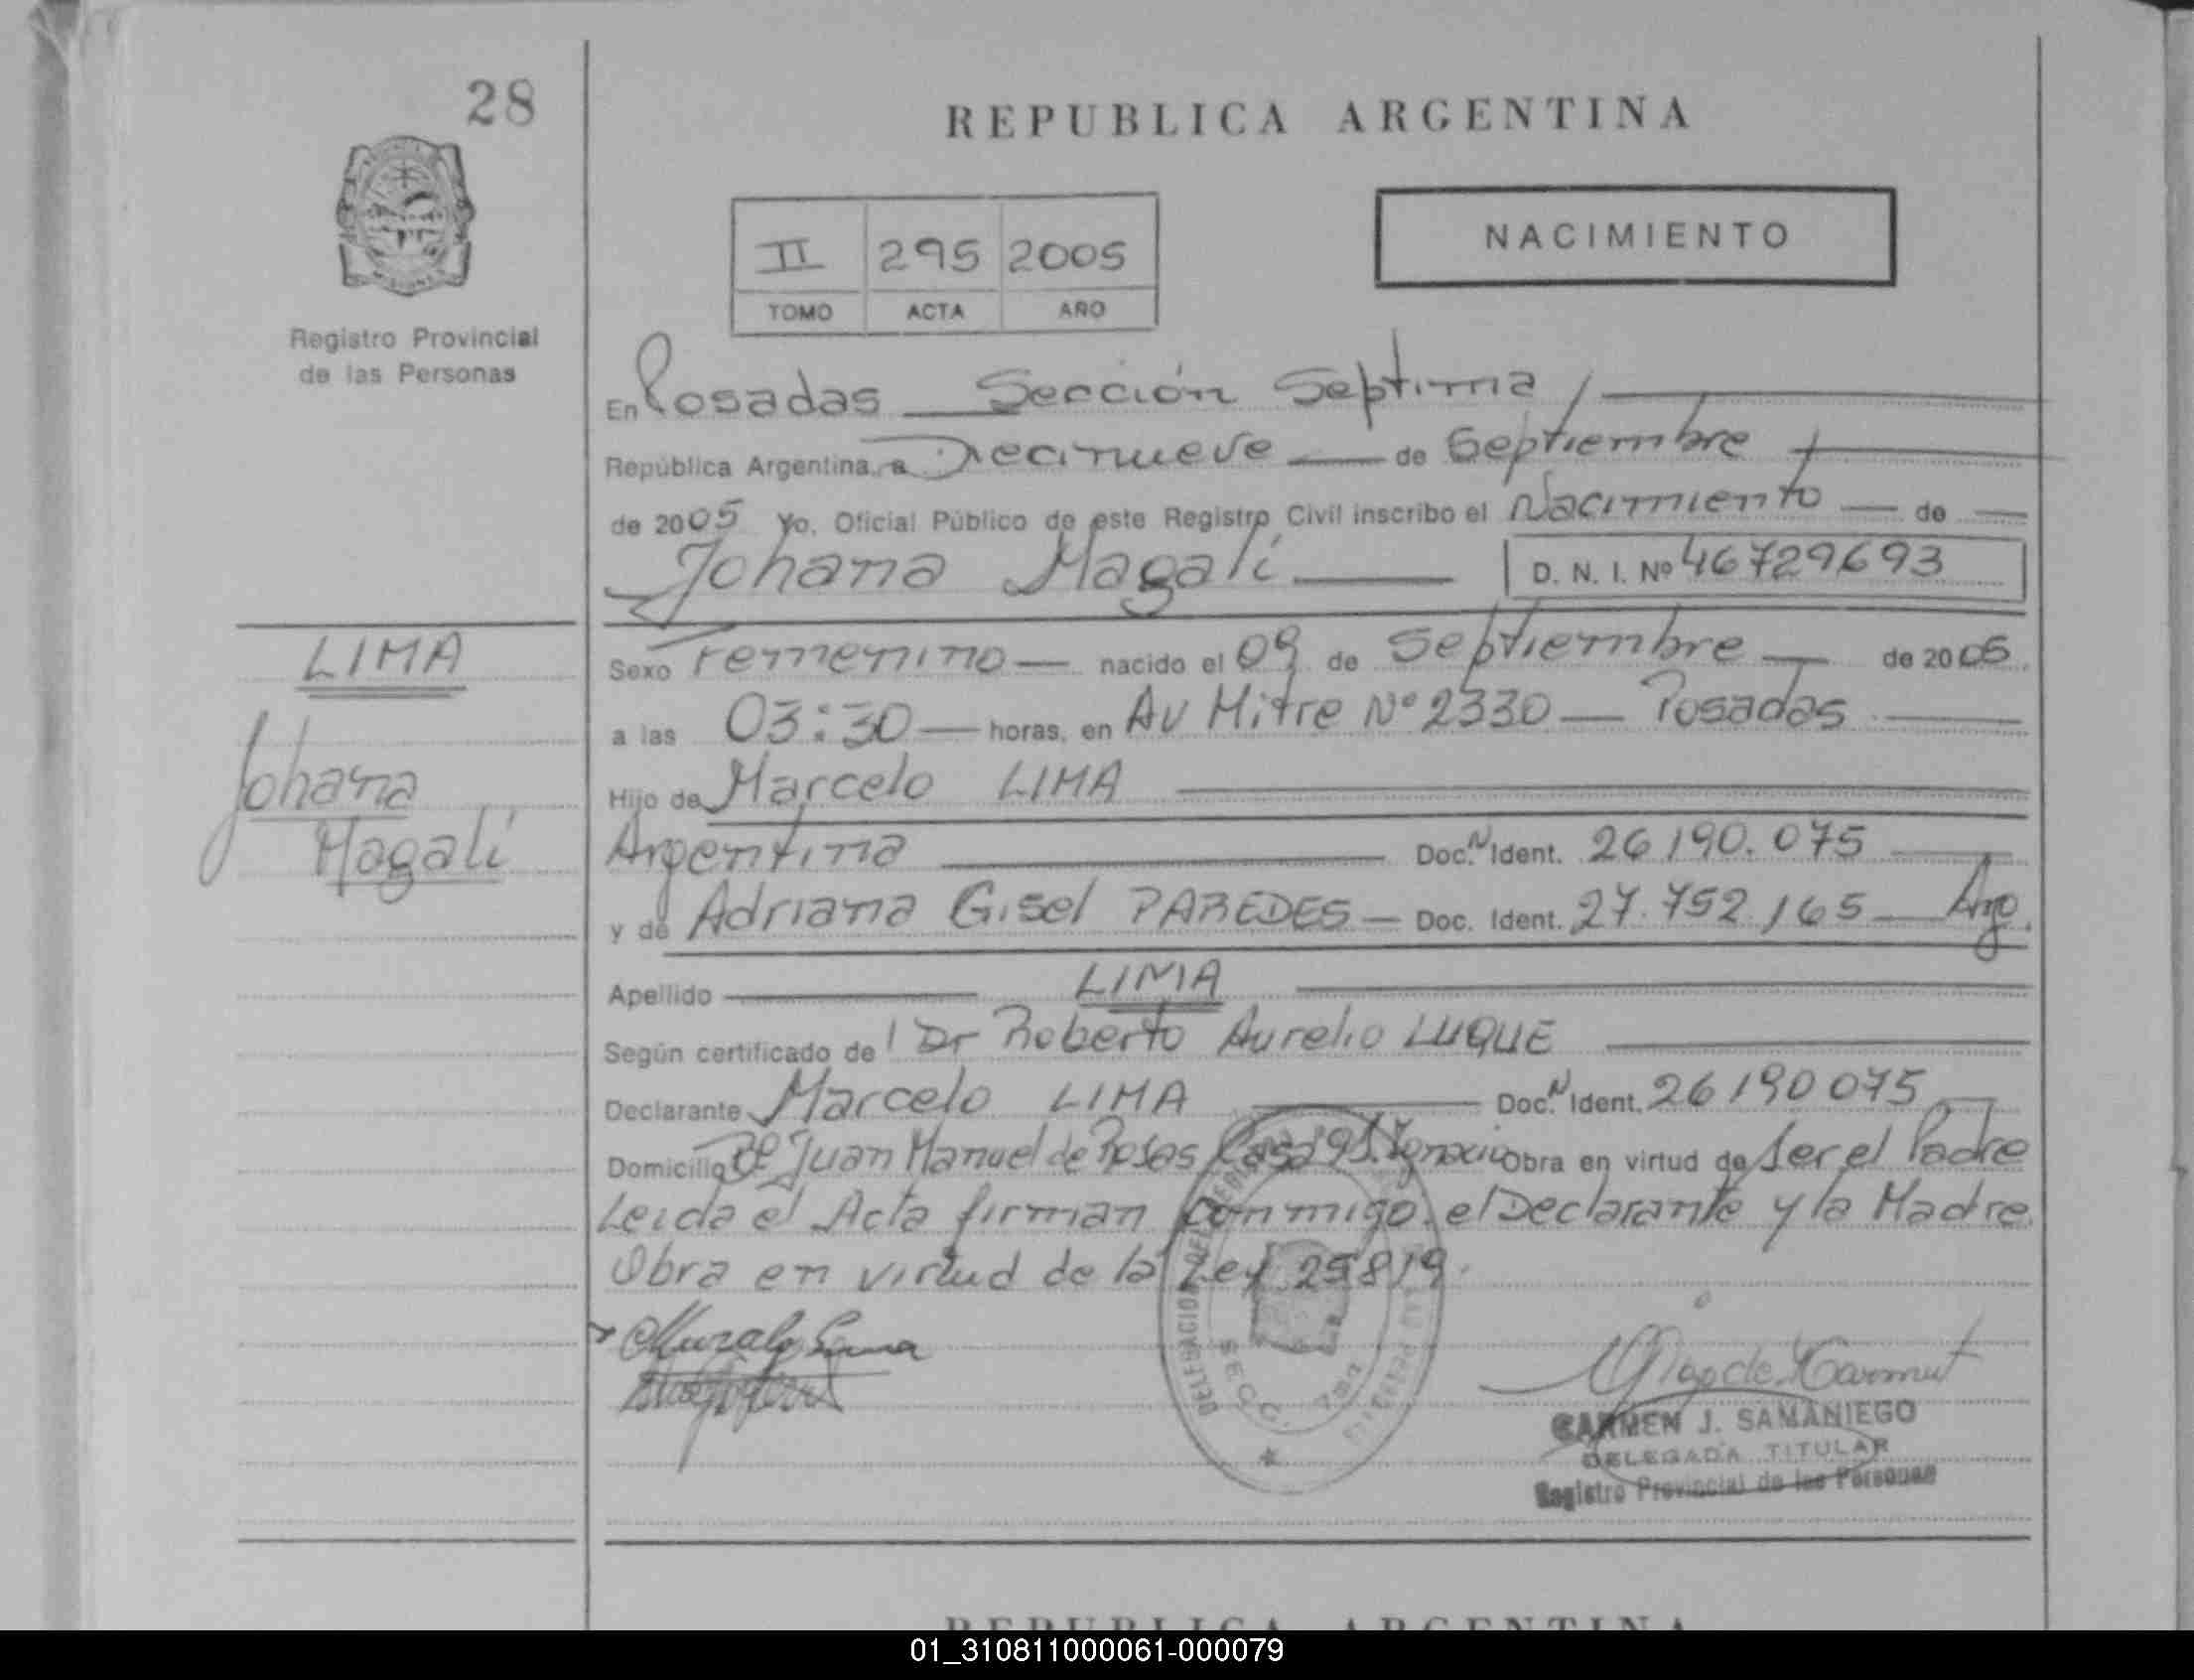 28
REPUBLICA ARGENTINA
NACIMIENTO
II 295 2005
TOMO ACTA AÑO
Registro Provincial
de las Personas
En Posadas Sección Septima
República Argentina, a Diecinueve de Septiembre
de 2005 Yo, Oficial Público de este Registro Civil inscribo el Nacimiento de
Johana Magalí D. N. I. Nº 46729693
LIMA
Johana
Magalí
Sexo Femenino nacido el 09 de Septiembre de 2005
a las 03:30 horas, en Av Mitre Nº 2330 Posadas
Hijo de Marcelo LIMA
Argentina Doc. N Ident. 26190.075
y de Adriana Gisel PAREDES Doc. Ident. 27.752.165 Arg.
Apellido LIMA
Según certificado de Dr Roberto Aurelio LUQUE
Declarante Marcelo LIMA Doc. N Ident. 26190075
Domicilio Bº Juan Manuel de Rosas Casa 9 S. Ignacio Obra en virtud de Ser el Padre
Leida el Acta firman conmigo el Declarante y la Madre.
Obra en virtud de la Ley 25819.
SECC. 7ma
CARMEN J. SAMANIEGO
DELEGADA TITULAR
Registro Provincial de las Personas
REPUBLICA ARGENTINA
01_310811000061-000079